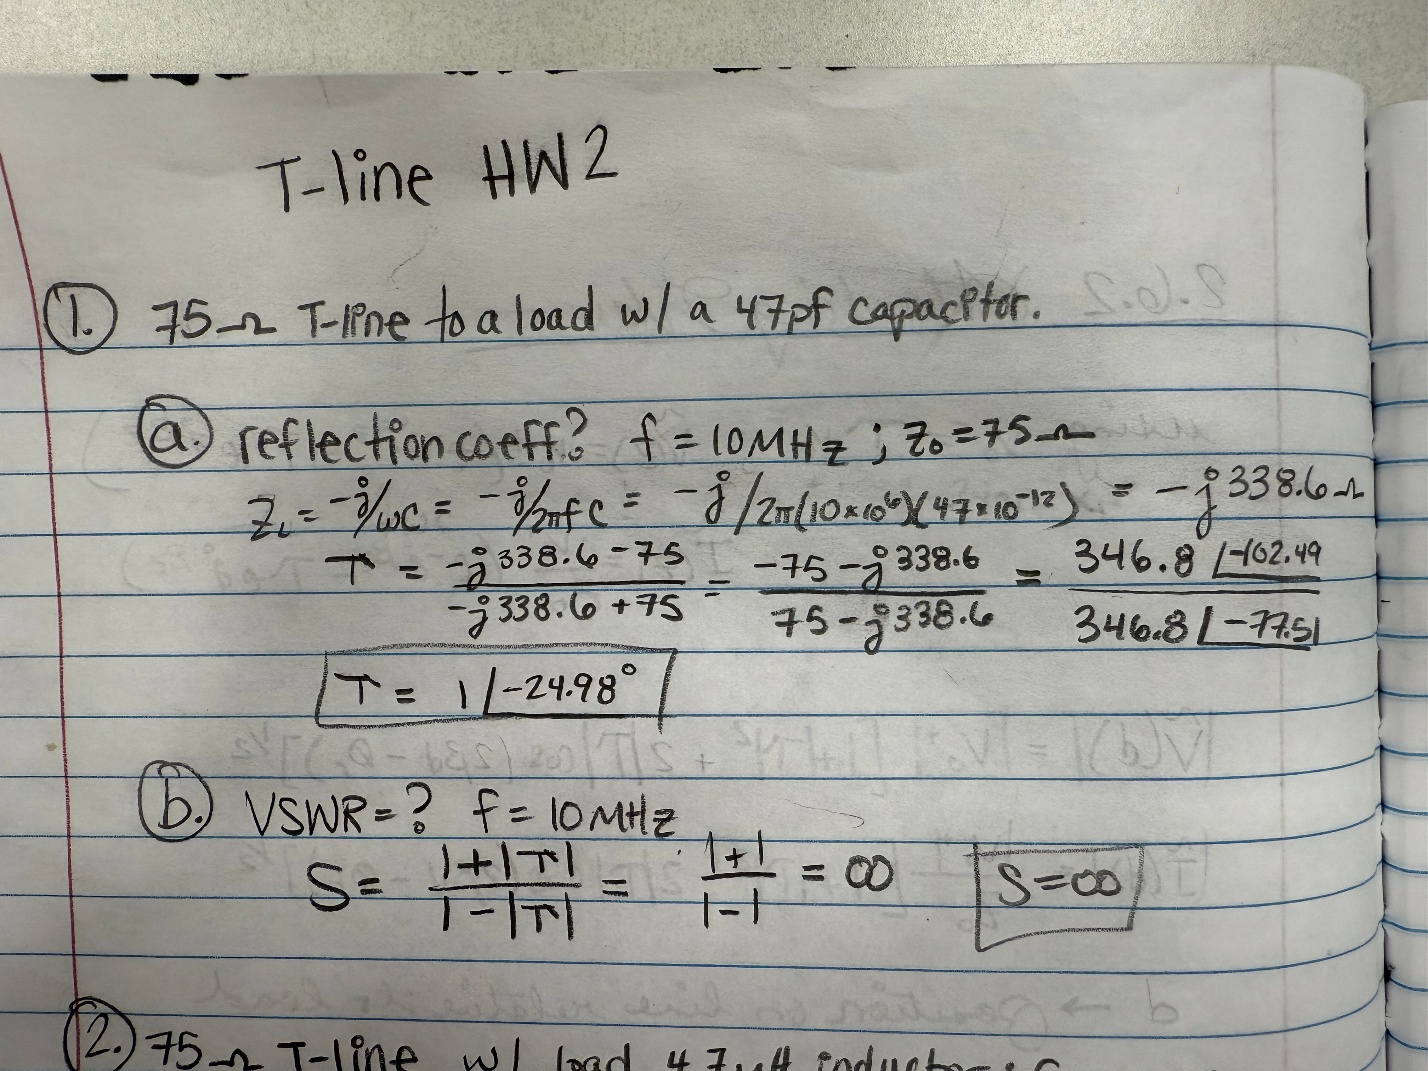 T-line HW2
1. 75Ω T-line to a load w/ a 47pf capacitor.
a. reflection coeff? f = 10MHz ; Z₀ = 75Ω
Z_L = -j/ωC = -j/2πfC = -j/2π(10×10⁶)(47×10⁻¹²) = -j338.6Ω
Γ = (-j338.6 - 75)/(-j338.6 + 75) = (-75 - j338.6)/(75 - j338.6) = 346.8∠-102.49 / 346.8∠-77.51
Γ = 1∠-24.98°
b. VSWR = ? f = 10MHz
S = (1+|Γ|)/(1-|Γ|) = (1+1)/(1-1) = ∞ S=∞
2. 75Ω T-line w/ load 4.7μH